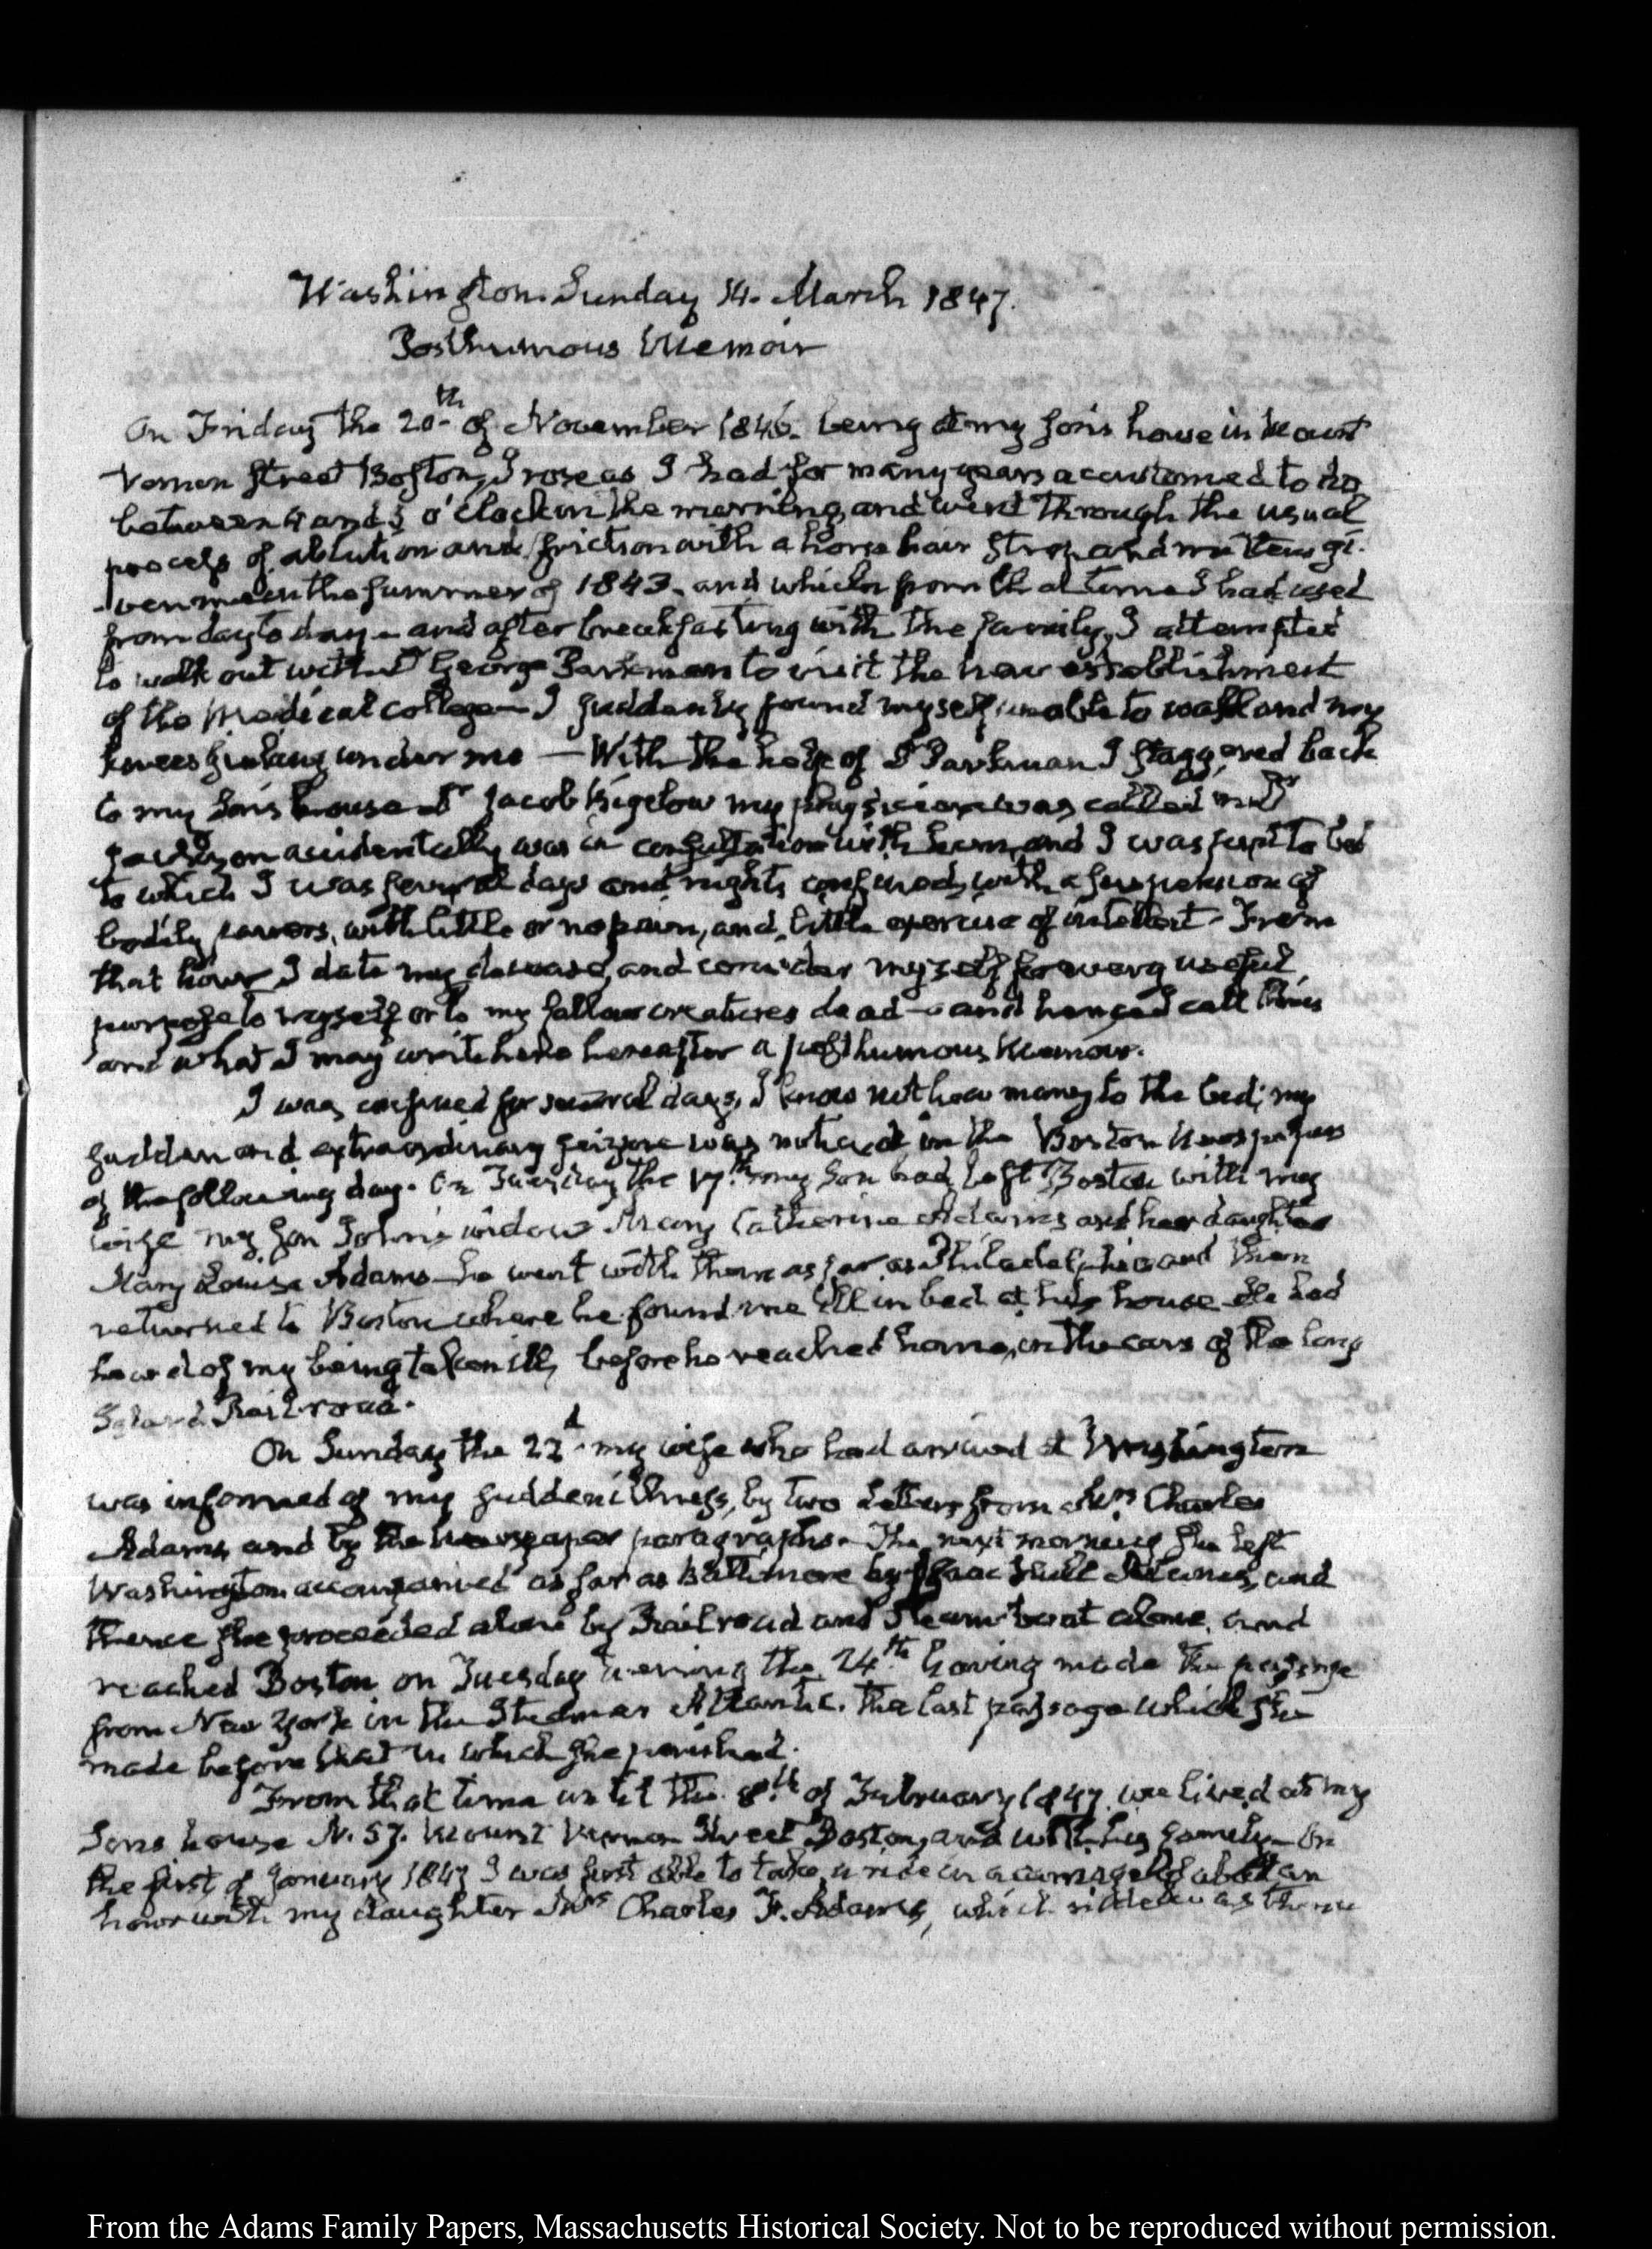 Washington. Sunday 14. March 1847.
Posthumous Memoir
On Friday the 20th of November 1846. being at my son's house in Mount
Vernon Street Boston, I rose as I had for many years accustomed to do
between 4 and 5 o'clock in the morning, and went through the usual
process of ablution and friction with a horse hair strap and mittens gi-
-ven me in the summer of 1843. and which from that time I had used
from day to day — and after breakfasting with the family, I attempted
to walk out with Dr George Parkman to visit the new establishment
of the Medical college — I suddenly found myself unable to walk and my
knees sinking under me — With the help of Dr Parkman I staggered back
to my Son's house Dr Jacob Bigelow my physician was called in Dr
accidentally was in consultation with him, and I was put to bed
to which I was several days and nights confined, with a suspension of
bodily powers, with little or no pain, and little exercise of intellect. From
that hour I date my decease, and consider myself for every useful
purpose to myself or to my fellow creatures dead — and hence I call this
and what I may write here hereafter a posthumous Memoir.
I was confined for several days, I know not how many to the bed; my
sudden and extraordinary seizure was noticed in the Boston Newspapers
of the following day. On Tuesday the 17th my Son had left Boston with my
wife my Son John's widow Mary Catherine Adams and her daughter
Mary Louisa Adams — he went with them as far as Philadelphia and then
returned to Boston where he found me ill in bed at his house. He had
heard of my being taken ill, before he reached home, in the cars of the Long
Island Railroad.
On Sunday the 22d my wife who had arrived at Washington
was informed of my sudden illness, by two Letters from Mrs Charles
Adams and by the newspaper paragraphs. The next morning she left
Washington accompanied as far as Baltimore by Isaac Hull Adams, and
thence she proceeded alone by Railroad and Steamboat alone, and
reached Boston on Tuesday evening the 24th having made the passage
from New York in the Steamer Atlantic. The last passage which she
made before that in which she perished.
From that time until the 8th of February 1847 we lived at my
Sons house N. 57. Mount Vernon Street Boston, and with his family — On
the first of January 1847 I was first able to take a ride in a carriage of about an
hour with my daughter Mrs Charles F. Adams, which